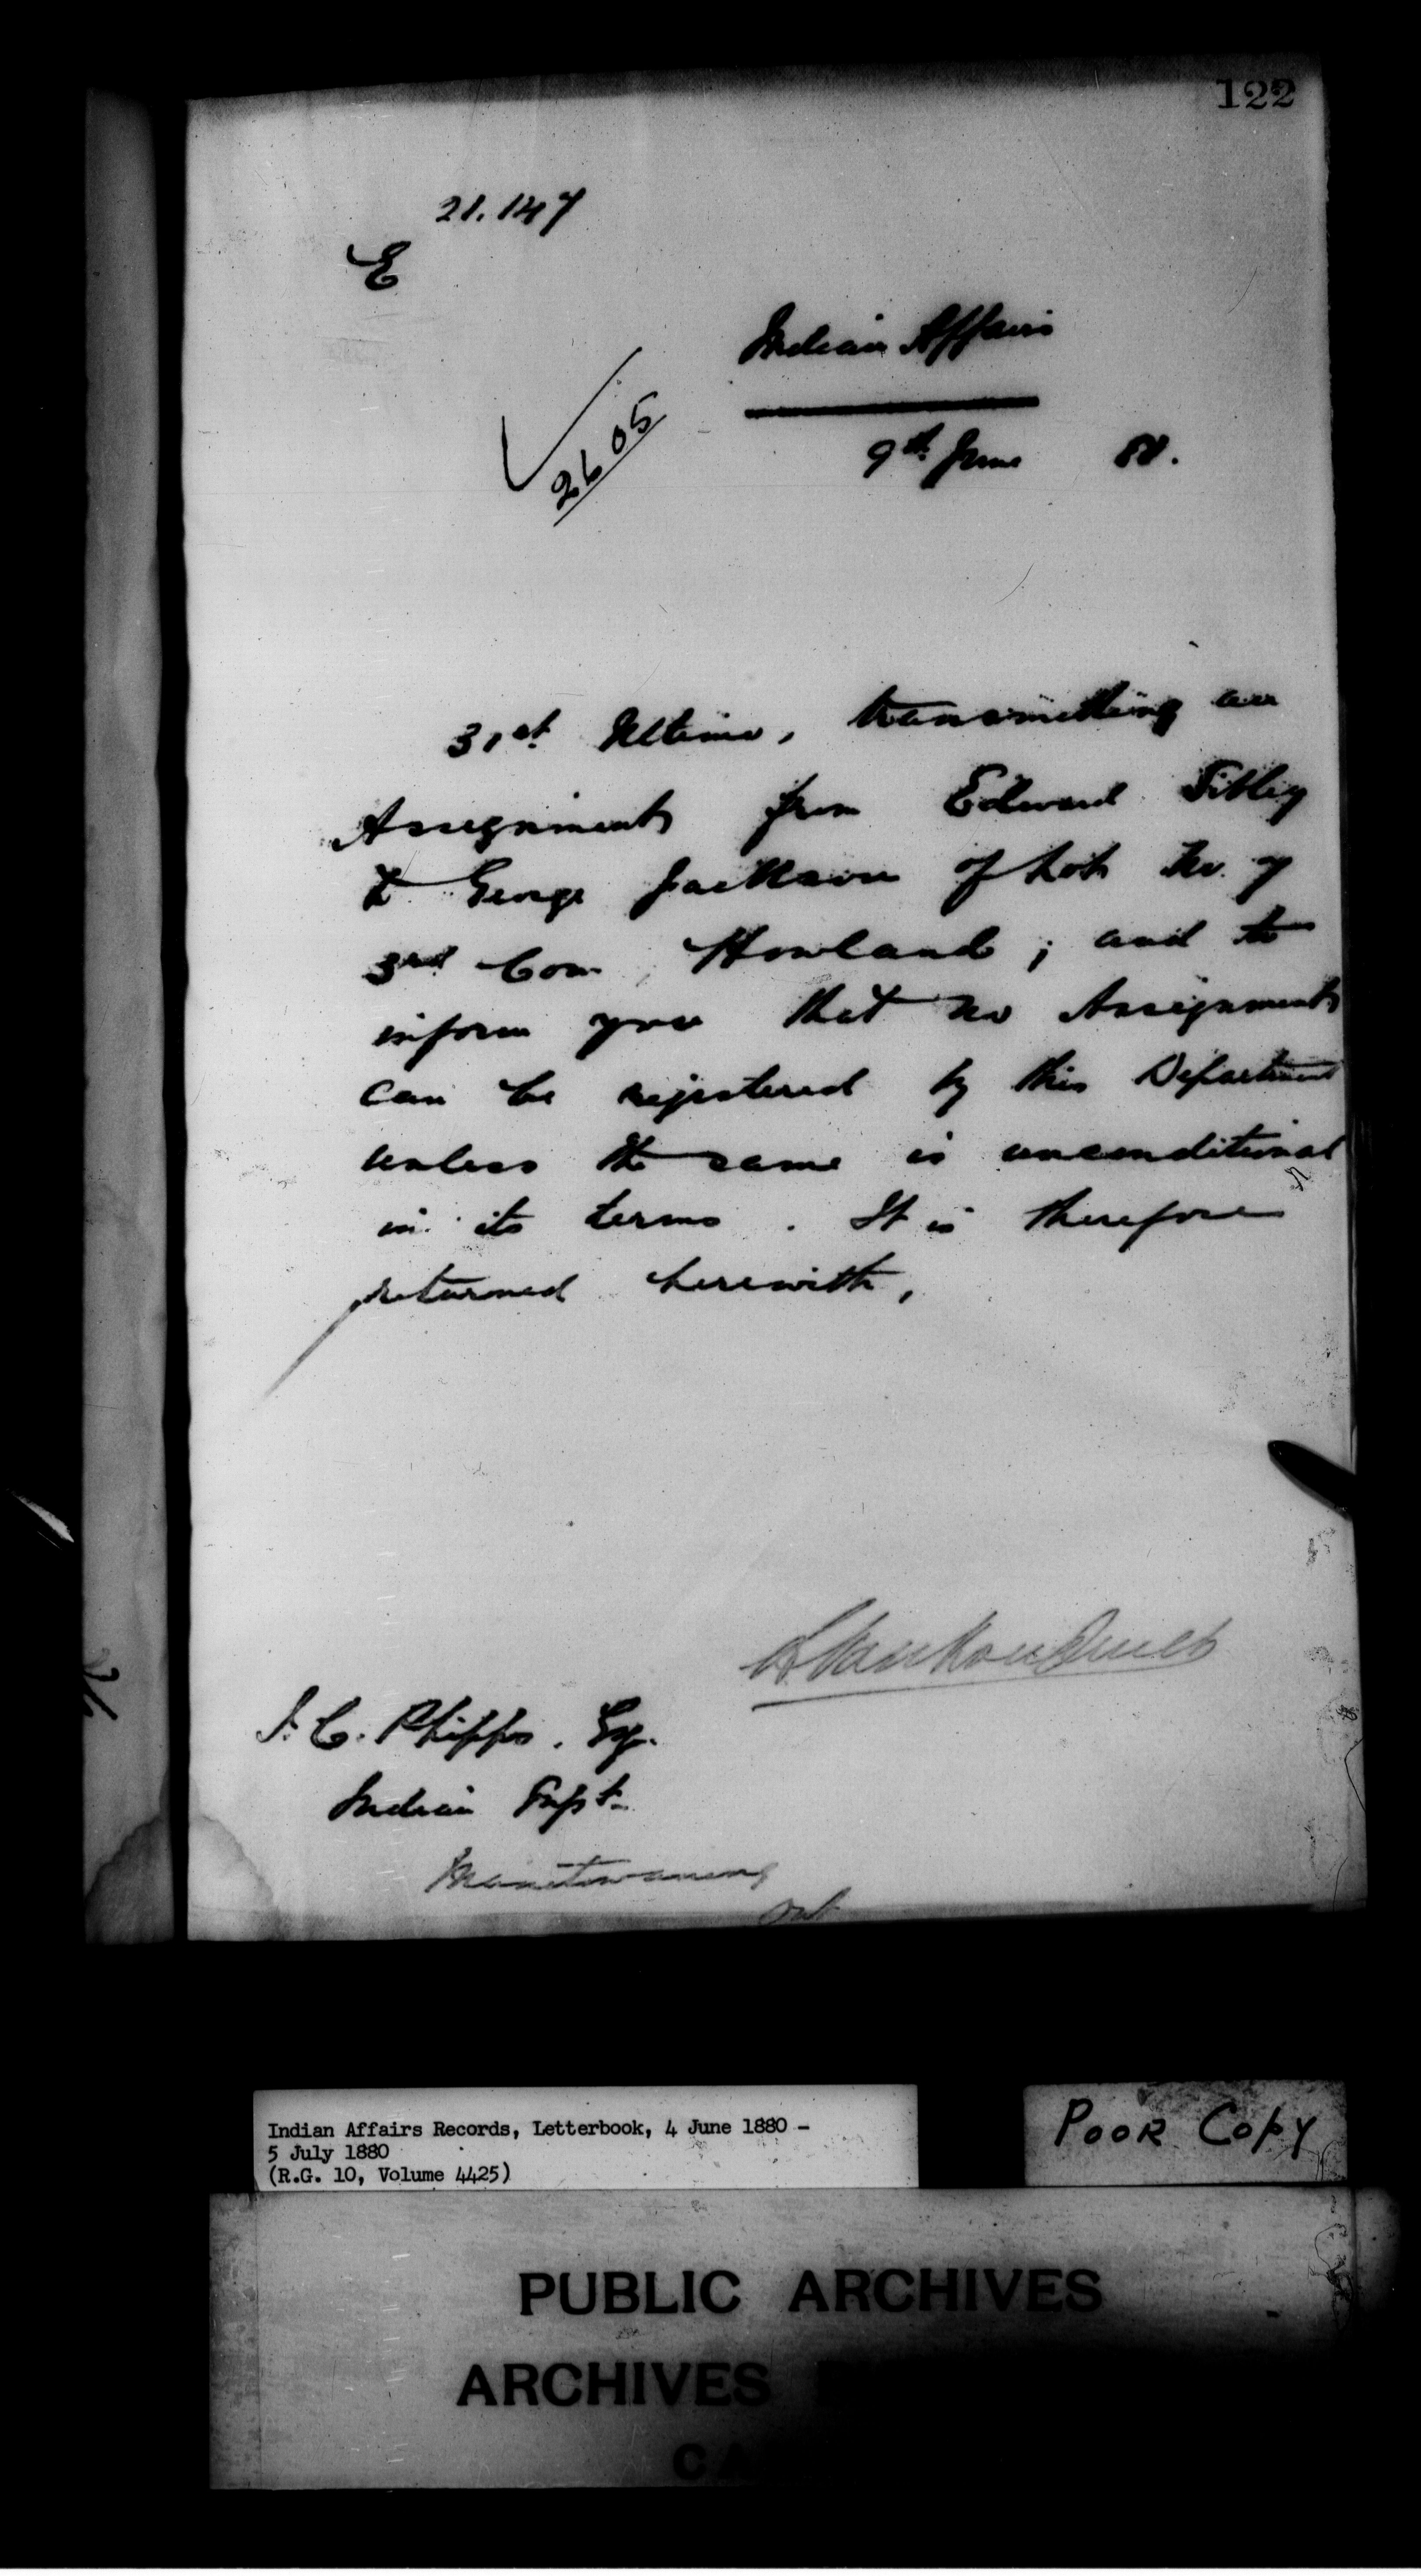 122
21.147
E
Indian Affairs
2605
9th June 80.
31st Ultimo, transmitting an
Assignment from Edward Sibley
to George Jackson of Lot No. 7
3rd Con Howland; and to
inform you that no Assignment
can be registered by this Department
unless the same is unconditional
in its terms. It is therefore
returned herewith,
L. VanKoughnet
J. C. Phipps. Esq.
Indian Supt.
Manitowaning
Ont
Indian Affairs Records, Letterbook, 4 June 1880 -
5 July 1880
(R.G. 10, Volume 4425)
POOR COPY
PUBLIC ARCHIVES
ARCHIVES
CA